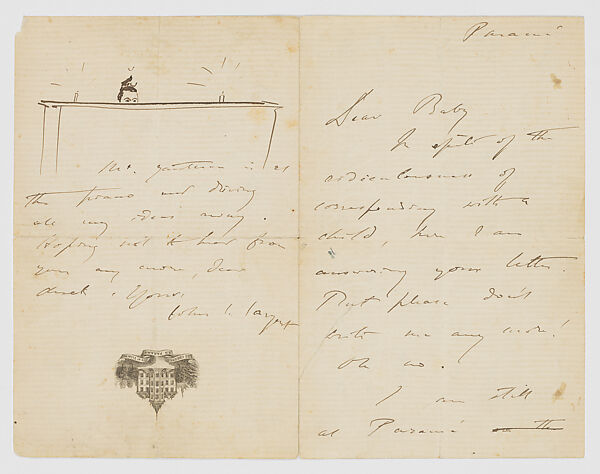 Paramé
Dear Baby
In spite of the
ridiculousness of
corresponding with a
child, here I am
answering your letter.
But please don't
write me any more!
Oh no.
I am still
at Paramé on the
Mr. Gautreau is at
the piano and driving
all my ideas away.
Hoping not to hear from
you any more, dear
duck. Yours
John S. Sargent